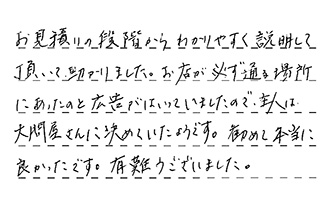 お見積りの段階からわかりやすく説明して
頂いて助かりました。お店が必ず通る場所
にあったのと広告がはいっていましたので、主人は
大間屋さんに決めていたようです。初めて本当に
良かったです。有難うございました。